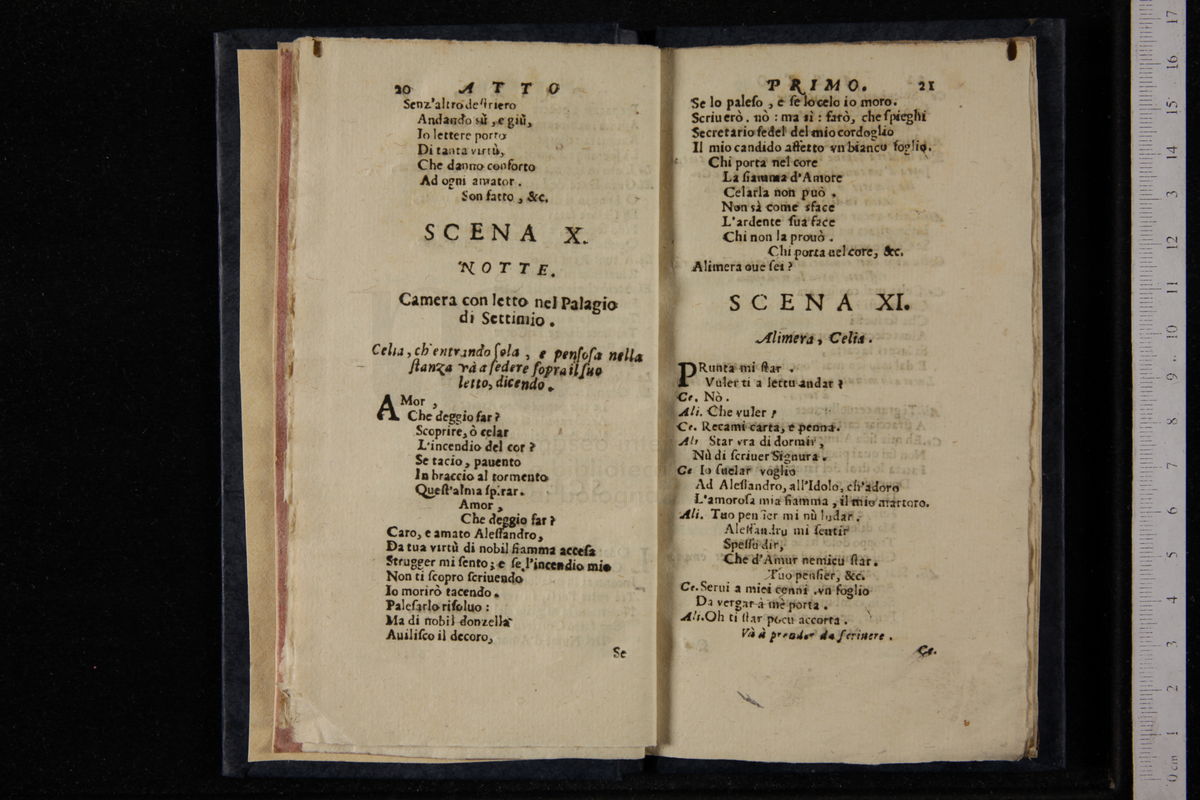 20 ATTO
Senz'altro destriero
Andando sù, e giù,
Io lettere porto
Di tanta virtù,
Che danno conforto
Ad ogni amator.
Son fatto, &c.
SCENA X.
NOTTE.
Camera con letto nel Palagio
di Settimio.
Celia, ch'entrando sola, e pensosa nella
stanza và a sedere sopra il suo
letto, dicendo.
AMor,
Che deggio far?
Scoprire, ò celar
L'incendio del cor?
Se tacio, pauento
In braccio al tormento
Quest'alma spirar.
Amor,
Che deggio far?
Caro, e amato Alessandro,
Da tua virtù di nobil fiamma accesa
Strugger mi sento; e se l'incendio mio
Non ti scopro scriuendo
Io morirò tacendo.
Palesarlo risoluo:
Ma di nobil donzella
Auilisco il decoro,
Se
PRIMO. 21
Se lo paleso, e se lo celo io moro.
Scriuerò. nò: ma sì: farò, che spieghi
Secretario fedel del mio cordoglio
Il mio candido affetto vn bianco foglio.
Chi porta nel core
La fiamma d'Amore
Celarla non può.
Non sà come sface
L'ardente sua face
Chi non la prouò.
Chi porta nel core, &c.
Alimera oue sei?
SCENA XI.
Alimera, Celia.
PRunta mi star.
Vuler ti a lettu andar?
Ce. Nò.
Ali. Che vuler?
Ce. Recami carta, e penna.
Ali Star vra di dormir,
Nù di scriuer Signura.
Ce Io suelar voglio
Ad Alessandro, all'Idolo, ch'adoro
L'amorosa mia fiamma, il mio martoro.
Ali. Tuo pensier mi nù ludar.
Alessandru mi sentir
Spessu dir,
Che d'Amur nemicu star.
Tuo pensier, &c.
Ce. Serui a miei cenni. vn foglio
Da vergar à mè porta.
Ali. Oh ti star pocu accorta.
Và à prender da scriuere.
Ce.